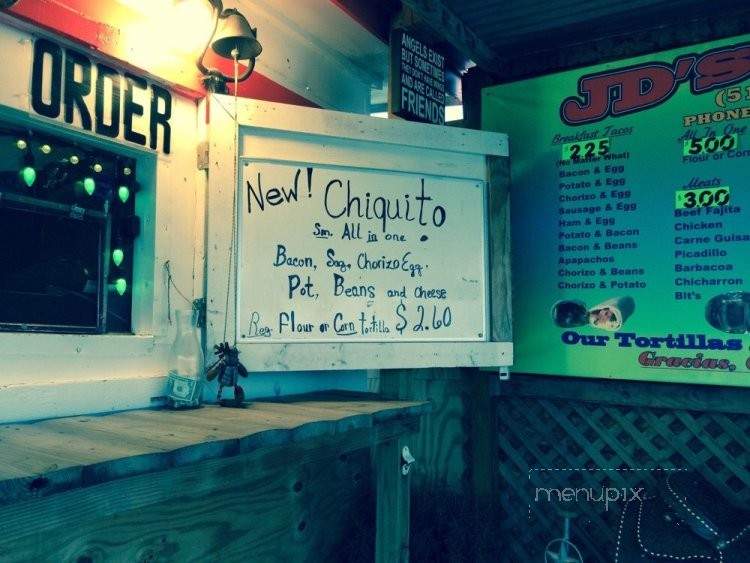 ORDER
ANGELS EXIST
BUT SOMETIMES
THEY DON'T HAVE WINGS
AND ARE CALLED
FRIENDS
New! Chiquito
Sm. All in one.
Bacon, Sag, Chorizo Egg.
Pot, Beans and cheese
Reg. Flour or Corn tortilla $2.60
JD'S
(51
PHONE
Breakfast Tacos
$2.25
(No Matter What)
Bacon & Egg
Potato & Egg
Chorizo & Egg
Sausage & Egg
Ham & Egg
Potato & Bacon
Bacon & Beans
Apapachos
Chorizo & Beans
Chorizo & Potato
All In One
$5.00
Flour or Corn
Meats
$3.00
Beef Fajita
Chicken
Carne Guisa
Picadillo
Barbacoa
Chicharron
Blt's
Our Tortillas
Gracias,
menupix